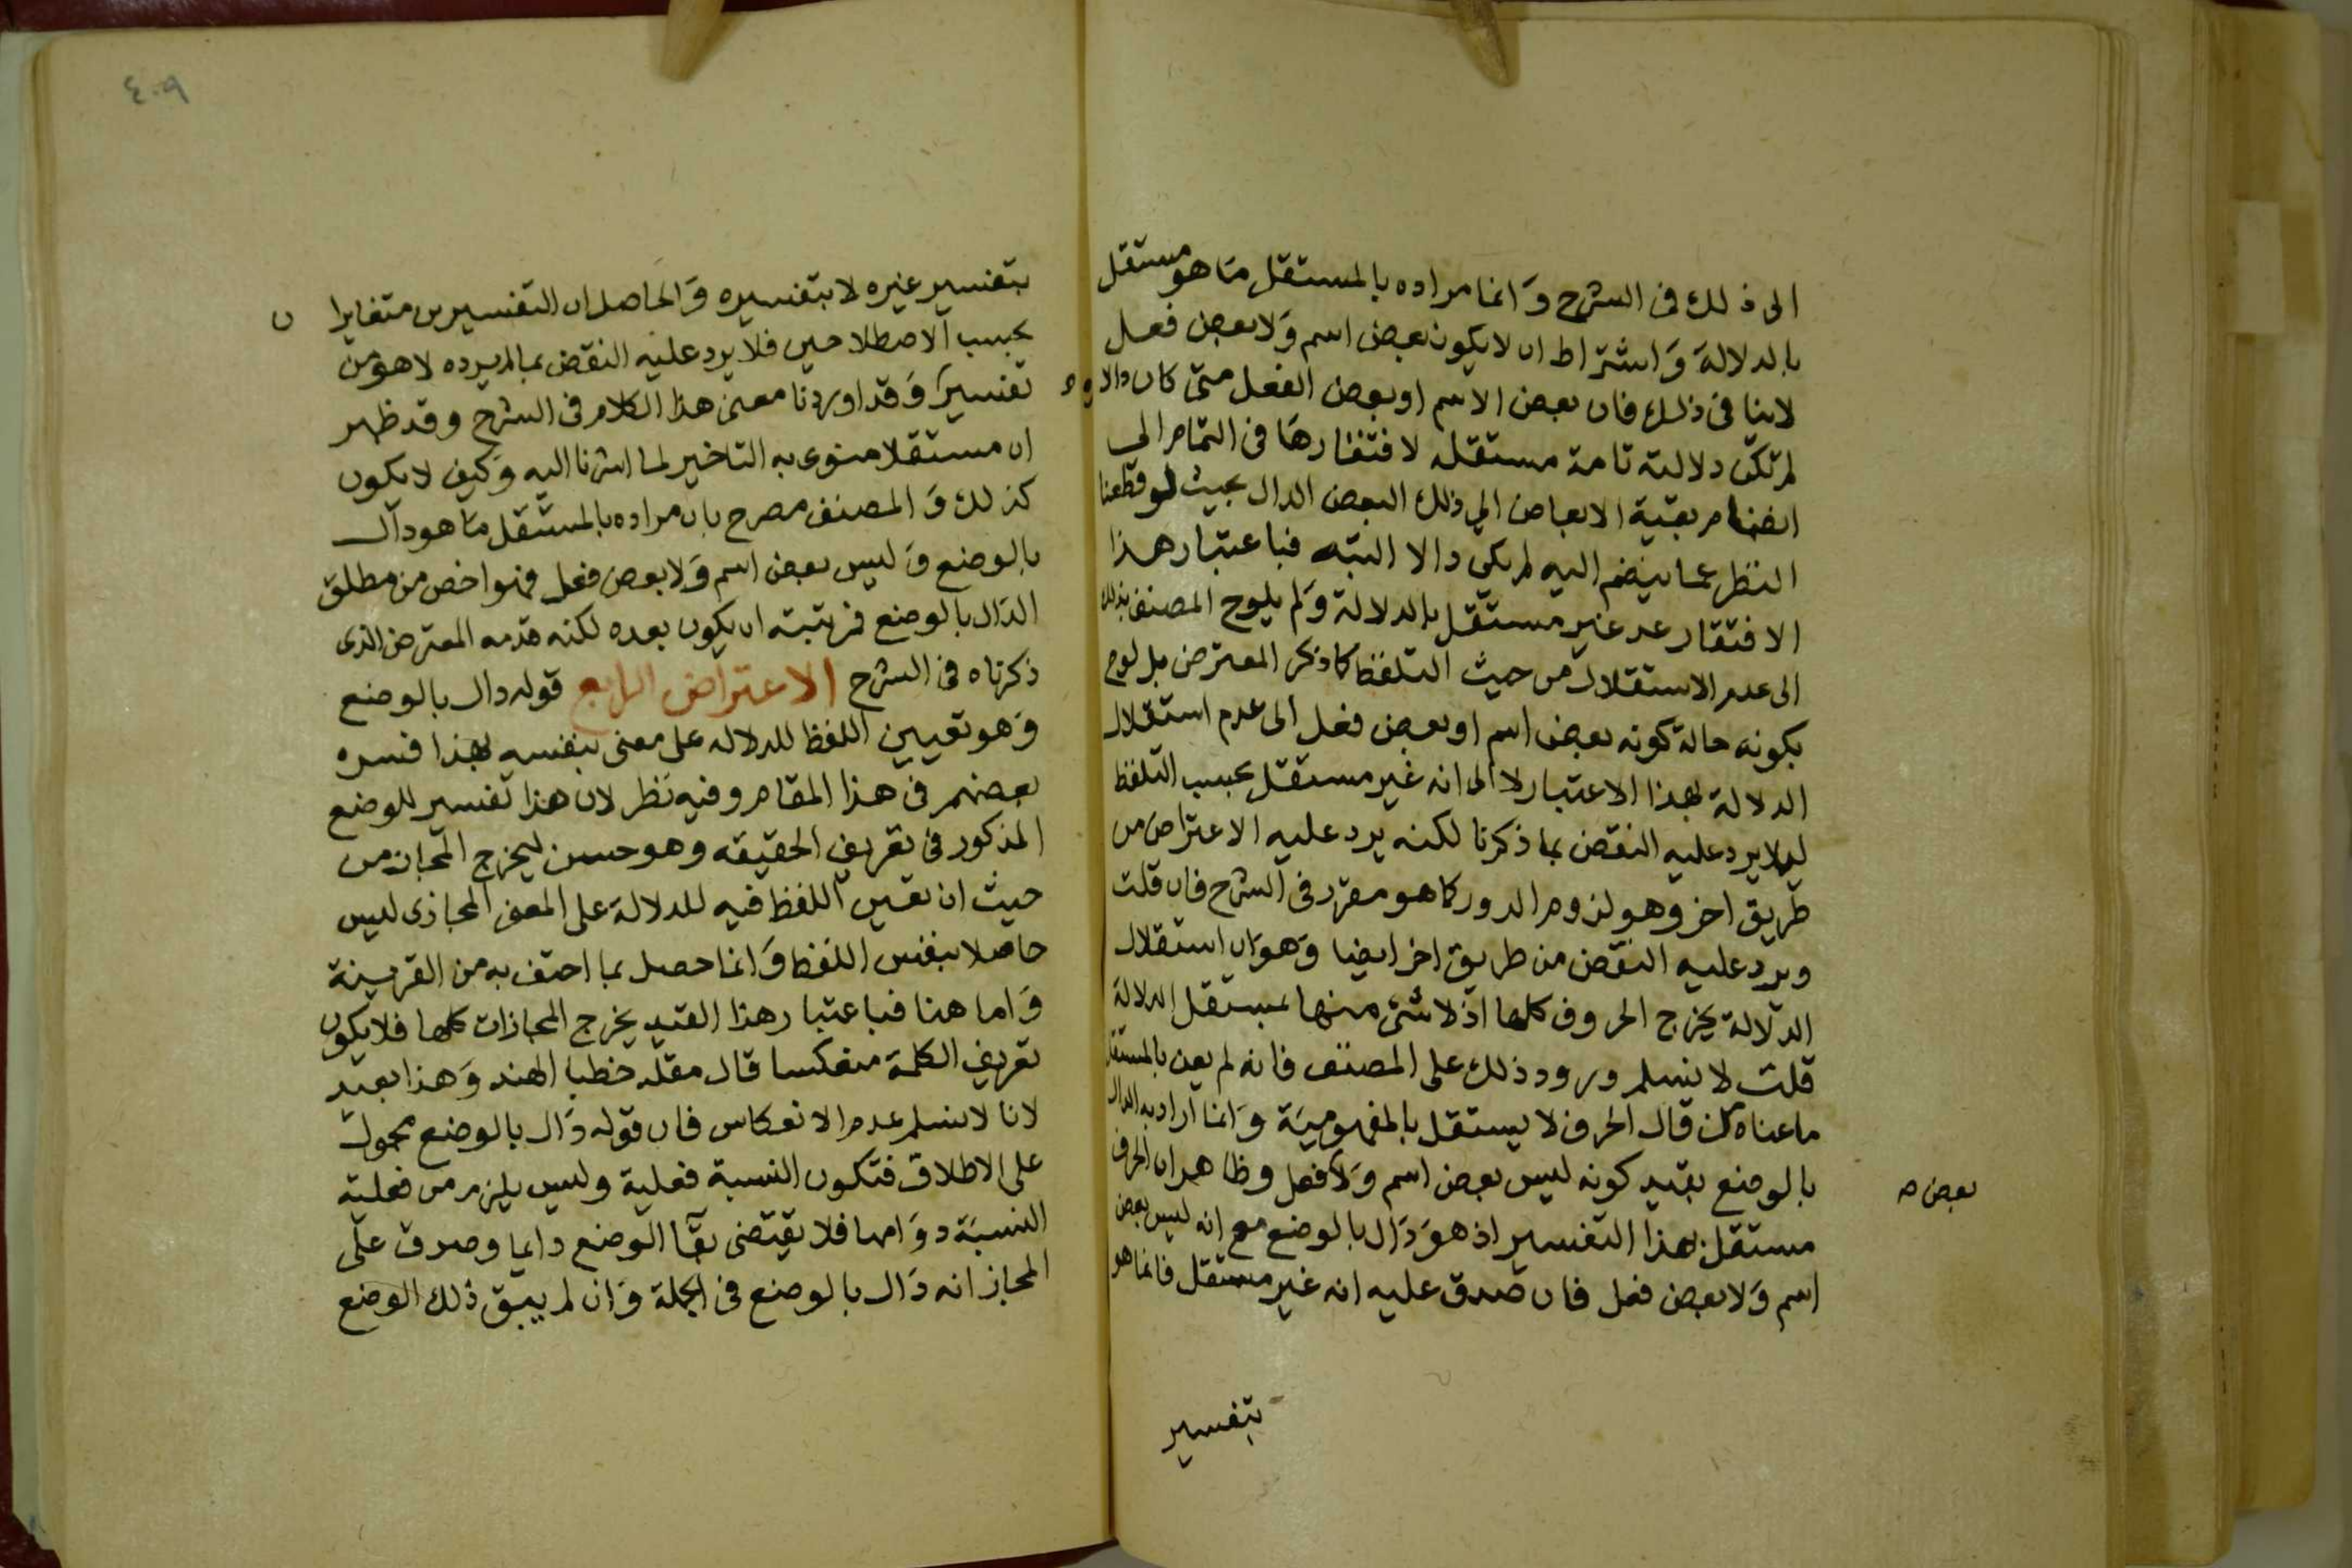 الى ذلك فى الشرح وَانما مراده بالمستقل مَا هو مستقل
بالدلالة وَاشتراط ان لا يكون بعض اسم وَلا بعض فعل
لاينا فى ذلك فان بعض الاسم او بعض الفعل متى كان دالا
لم تكن دلالته تامة مستقله لافتقارهَا فى التمام الى
انضمام بقية الابعاض الي ذلك البعض الدال بحيث لو قطعنا
النظر عما ينضم اليه لم يكن دالا البته فباعتبار هذا
الافتقار عد غير مستقل بالدلالة وَلم يلوح المصنف بذلك
الى عدم الاستقلال من حيث التلفظ كما ذكر المعترض بل لوح
بكونه حالة كونه بعض اسم او بعض فعل الى عدم استقلال
الدلالة بهذا الاعتبار لا الى انه غير مستقل بحسب التلفظ
ليلا يرد عليه النقض بما ذكرنا لكنه يرد عليه الاعتراض من
طريق اخر وهو لزوم الدور كما هو مقرر فى الشرح فان قلت
ويرد عليه النقض من طريق اخر ايضا وَهوَ ان استقلال
الدلالة يخرج الحروف كلها اذ لا شئ منها بمستقل الدلالة
قلت لا نسلم ورود ذلك على المصنف فانه لم يعن بالمستقل
ما عناه من قال الحرف لا يستقل بالمفهوميَة وَانما اراد به الدال
بالوضع بقيد كونه ليس بعض اسم وَلا فعل وظاهر ان الحرف
بعض صه
مستقل بهذا التفسير اذ هوَ دَال بالوضع مع انه ليس بعض
اسم وَلا بعض فعل فان صدق عليه انه غير مستقل فانما هو
بتفسير
٤٠٩
بتفسير غيره لا بتفسيره وَالحاصل ان التفسيرين متغايرا ن
بحسب الاصطلاحين فلا يرد عليه النقض بما لم يرده لا هو من
تفسيره وَقد اوردنا معنى هذا الكلام فى الشرح وقد ظهر
ان مستقلا منوى به التاخير لما اشرنا اليه وَكيف لا يكون
كذلك وَالمصنف مصرح بان مراده بالمستقل مَا هو دال
بالوضع وَليس بعض اسم وَلا بعض فعل فهو اخص من مطلق
الدَال بالوضع فرتبته ان يكون بعده لكنه قدمه المعترض الذى
ذكرناه فى الشرح الاعتراض الرابع قوله دال بالوضع
وَهو تعيين اللفظ للدلاله على معنى بنفسه بهذا فسره
بعضهم فى هذا المقام وفيه نظر لان هذا تفسير للوضع
المذكور فى تعريف الحقيقه وهو حسن ليخرج المجاز من
حيث ان تعين اللفظ فيه للدلالة على المعنى المجازى ليس
حاصلا بنفس اللفظ وَانما حصل بما احتف به من القرينة
وَاما هنا فباعتبار هذا القيد يخرج المجازات كلها فلا يكون
تعريف الكلمة منعكسا قال مقلد خطبا الهند وَهذا بعيد
لانا لا نسلم عدم الانعكاس فان قوله دَال بالوضع محمول
على الاطلاق فتكون النسبة فعلية وليس يلزم من فعلية
النسبَة دوَامها فلا يقتضى بقَا الوضع دايما وصدق على
المجاز انه دَال بالوضع فى الجملة وَان لم يبق ذلك الوضع